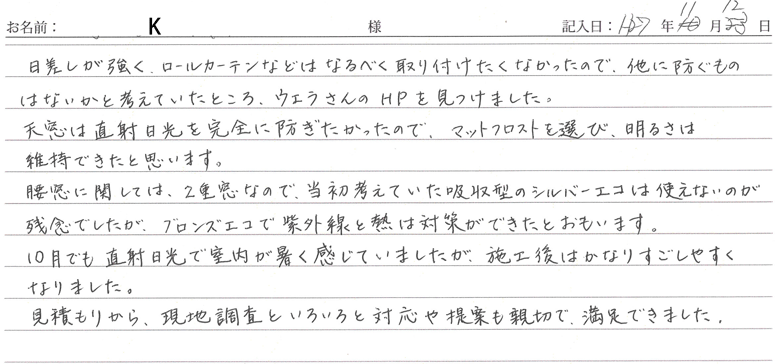 お名前： K 様 記入日：H27 年 11 月 12 日
日差しが強く、ロールカーテンなどはなるべく取り付けたくなかったので、他に防ぐもの
はないかと考えていたところ、ウエラさんのHPを見つけました。
天窓は直射日光を完全に防ぎたかったので、マットフロストを選び、明るさは
維持できたと思います。
腰窓に関しては、2重窓なので、当初考えていた吸収型のシルバーエコは使えないのが
残念でしたが、ブロンズエコで紫外線と熱は対策ができたとおもいます。
10月でも直射日光で室内が暑く感じていましたが、施工後はかなりすごしやすく
なりました。
見積もりから、現地調査といろいろと対応や提案も親切で、満足できました。